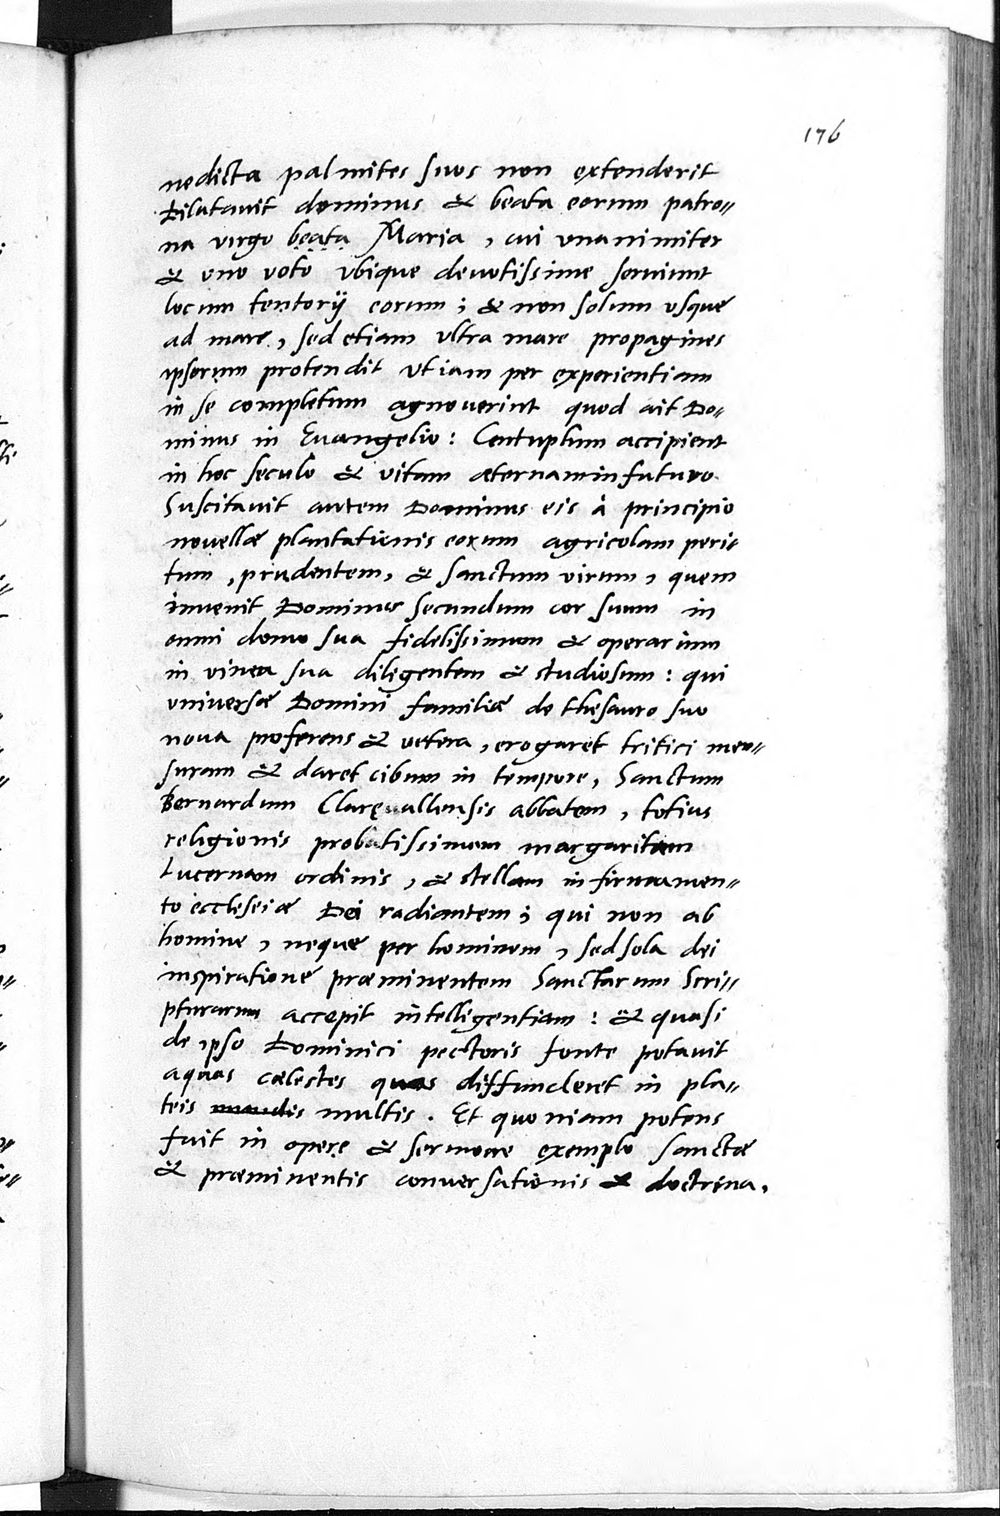 176
nedicta palmites suos non extenderit
Dilatauit dominus & beata eorum patro=
na virgo beata Maria, cui vnanimiter
& vno voto vbique deuotissime seruiunt
locum tentorij eorum; & non solum vsque
ad mare, sed etiam vltra mare propagines
ipsorum protendit vt iam per experientiam
in se completum agnouerint quod ait Do=
minus in Euangelio: Centuplum accipient
in hoc seculo & vitam æternam in futuro.
Suscitauit autem Dominus eis à principio
nouellæ plantationis eorum agricolam peri=
tum, prudentem, & sanctum virum, quem
inuenit Dominus secundum cor suum in
omni domo sua fidelissimum & operarium
in vinea sua diligentem & studiosum: qui
vniuersæ Domini familiæ de thesauro suo
noua proferens & vetera, erogaret tritici men=
suram & daret cibum in tempore, Sanctum
Bernardum Claręuallensis abbatem, totius
religionis probatissimam margaritam
Lucernam ordinis, & stellam in firmamen=
to ecclesiæ Dei radiantem; qui non ab
homine, neque per hominem, sed sola dei
inspiratione præminentem Sanctarum Scri=
pturarum accepit intelligentiam: & quasi
de ipso Dominici pectoris fonte potauit
aquas cælestes quas diffunderet in pla=
teis multis. Et quoniam potens
fuit in opere & sermone exemplo sanctæ
& præminentis conuersationis & doctrina,